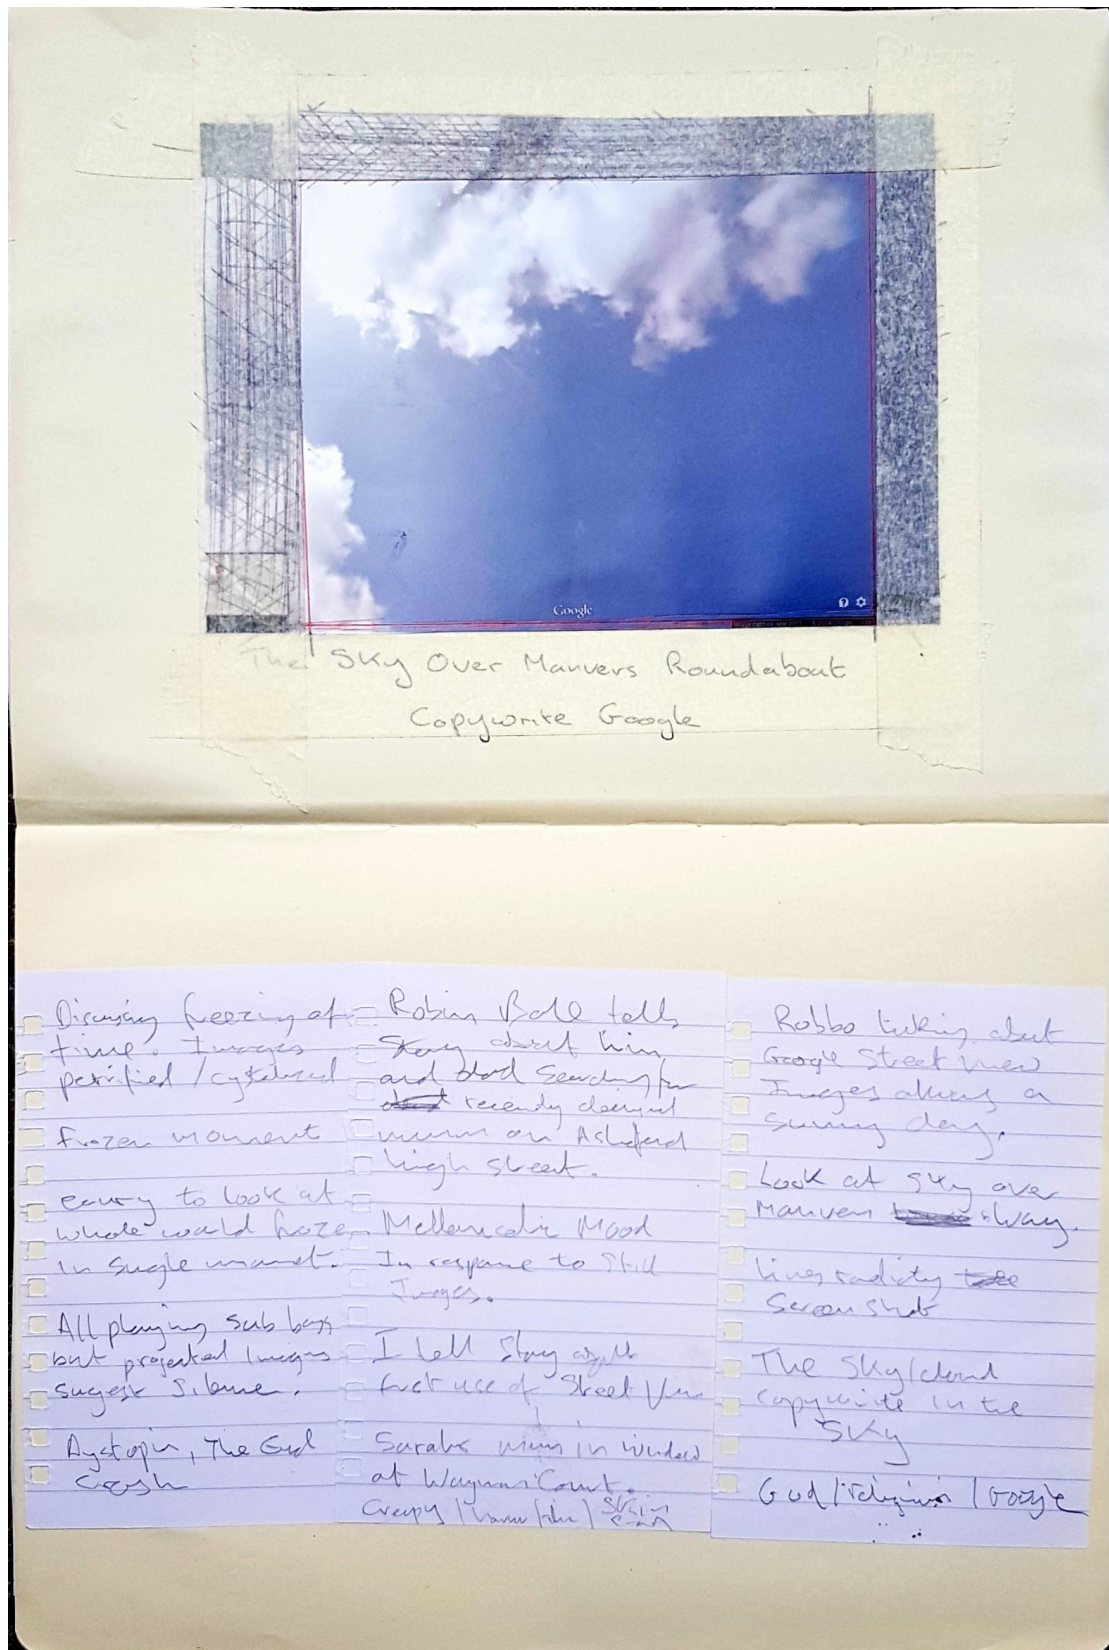 Google
The Sky Over Manvers Roundabout
Copywrite Google
Discussing freezing of
time. Images
petrified / cystalized
frozen moment
eary to look at
whole world froze
in single moment.
All playing sub bass
but projected Images
sugest Silence.
Dystopia, The End
Robin Ball tells
Story about him
and dad Searching for
recently deceased
mum on Ashford
high street.
Mellancolic Mood
In response to Still
Images.
I tell Story
first use of Street View
Sarahs mum in window
at Wayman Court.
Creepy /
Robbo talking about
Google Street View
Images always a
sunny day.
Look at sky over
Manvers Way.
Screen shot
The Sky/cloud
copywrite in the
Sky
God / religion / Google